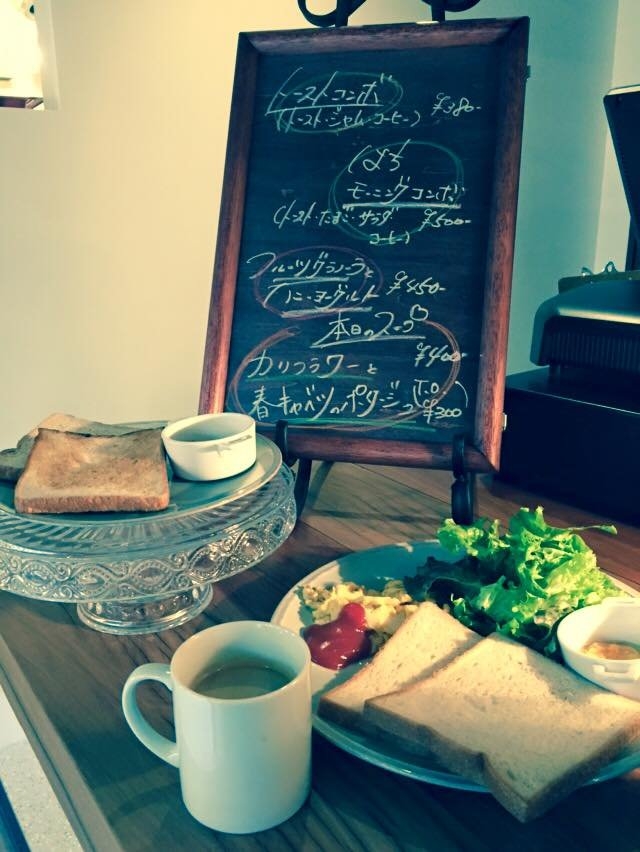 トーストコンボ
(トースト・ジャム・コーヒー) ¥380-
モーニングコンボ
(トースト・たまご・サラダ ¥500-
コーヒー)
フルーツグラノーラと
ハニーヨーグルト ¥450-
本日のスープ♡
カリフラワーと ¥400-
春キャベツのポタージュ (T.O ¥300)